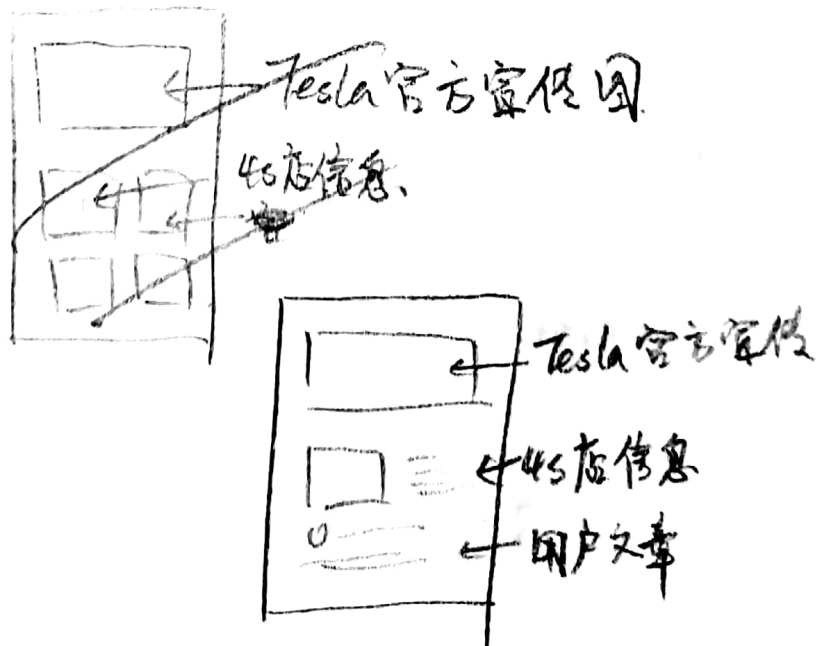 Tesla官方宣传图
4s店信息、
Tesla官方宣传
4s店信息
用户文章